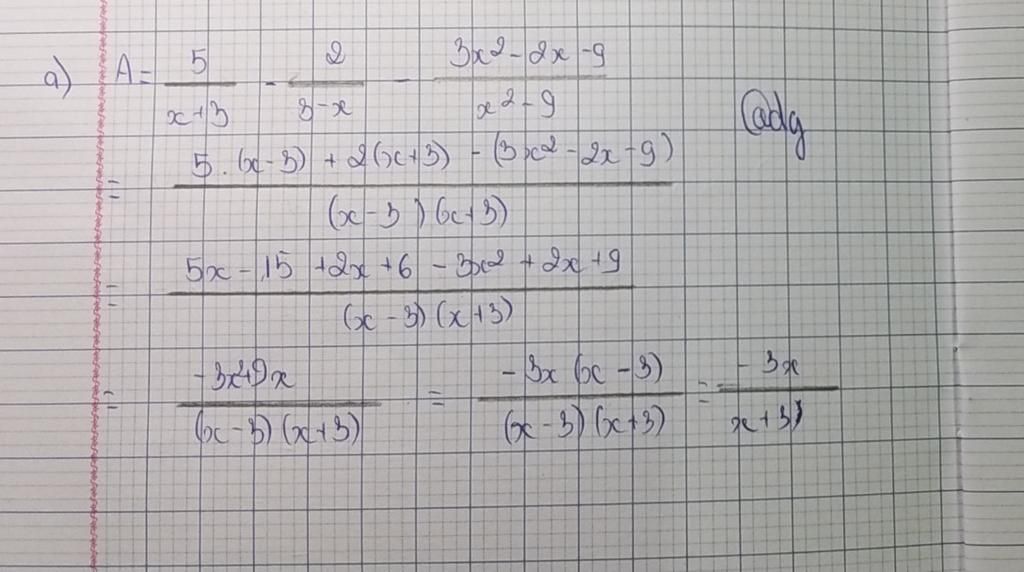 a) A = 5/(x+3) - 2/(3-x) - (3x² - 2x - 9)/(x² - 9)
@ady
= (5.(x-3) + 2(x+3) - (3x² - 2x - 9))/((x-3)(x+3))
= (5x - 15 + 2x + 6 - 3x² + 2x + 9)/((x-3)(x+3))
= (-3x²+9x)/((x-3)(x+3)) = (-3x(x-3))/((x-3)(x+3)) = (-3x)/(x+3)